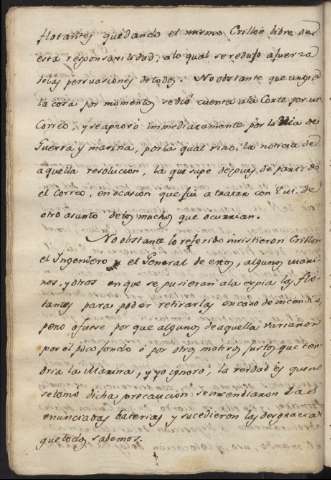 flotantes quedando el mismo Crillon libre de
esta responsavilidad; a lo qual se redujo a fuerza
de las persuasiones de todos. No obstante que urgia
la cosa por momentos se dió cuenta a la Corte por un
Correo, y se aprovó immediatamente por la Via de
Guerra y marina, por la qual vino la noticia de
aquella resolucion, la que supe despues de partido
el Correo, en ocasion que fui a tratar con
otro asunto de los muchos que ocurrian.
No obstante lo referido insistieron Crillon
el Ingeniero y el General de estos, algunos mari-
nos, y otros en que se pusieran a la espia las flo-
tantes para poder retirarlas en caso de incendio,
pero ofuese por que algunos de aquella varianon
por el poco fondo ó por otros motivos justos que ten-
dria la Marina, y yo ignoro; la verdad es que no
se tomó dicha precaucion: se incendiaron las
enunciadas baterias y sucedieron las desgracias
que todos sabemos.